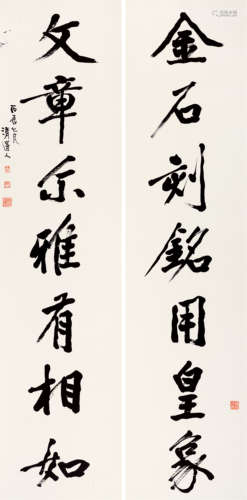 金石刻銘用皇象
文章尒雅有相如
清道人